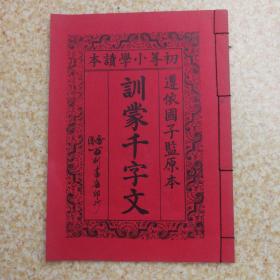 初等小學讀本
遵依國子監原本
訓蒙千字文